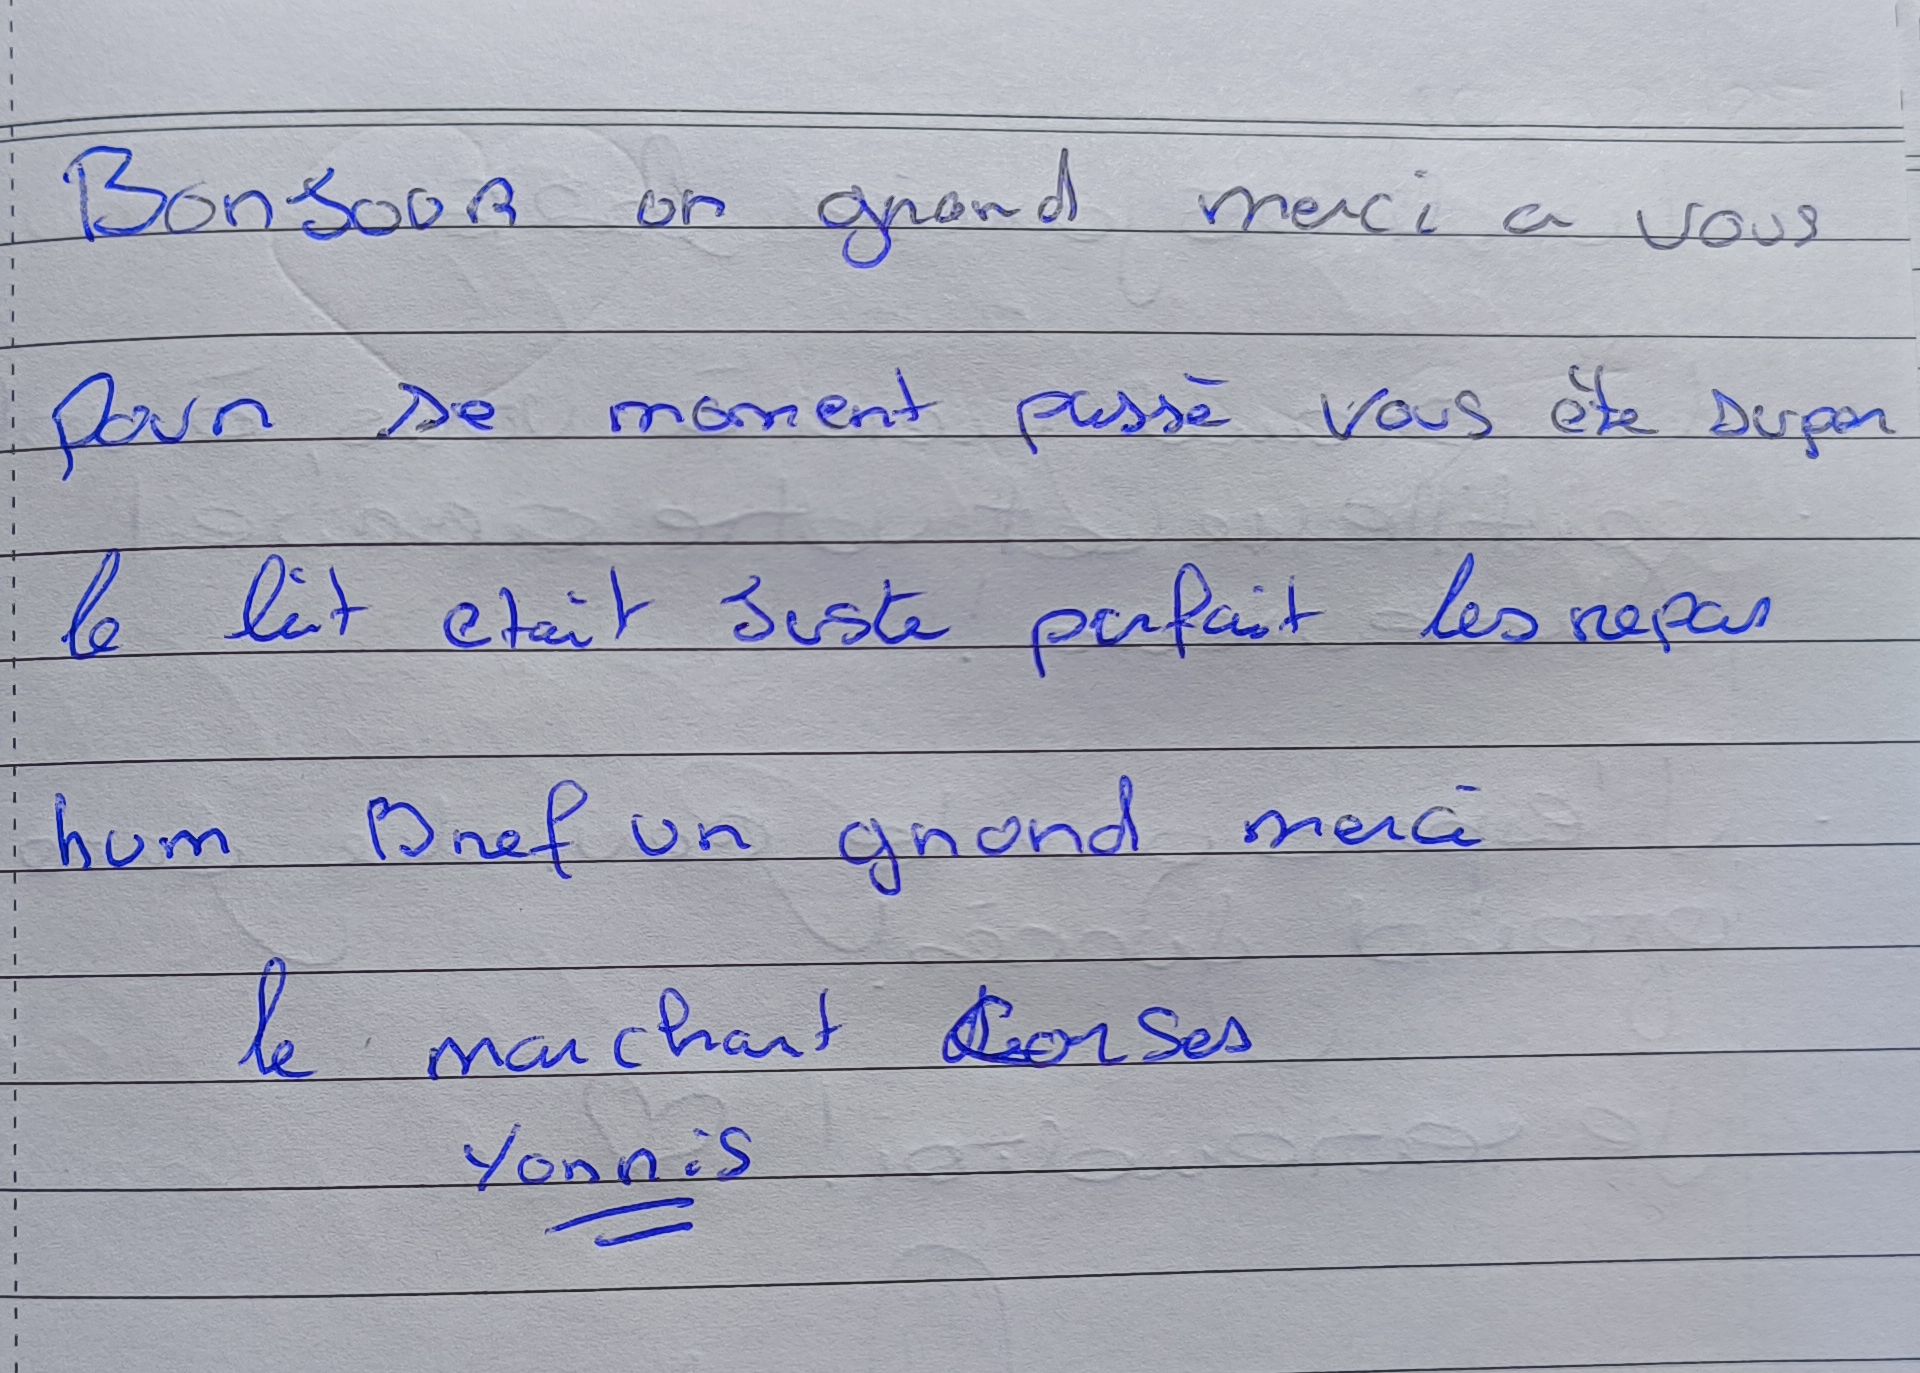 Bonjoor un grand merci a vous
pour se moment passé vous éte super
le lit etait juste parfait les repas
hum Bref un grand merci
le marchant Corses
Yonnis